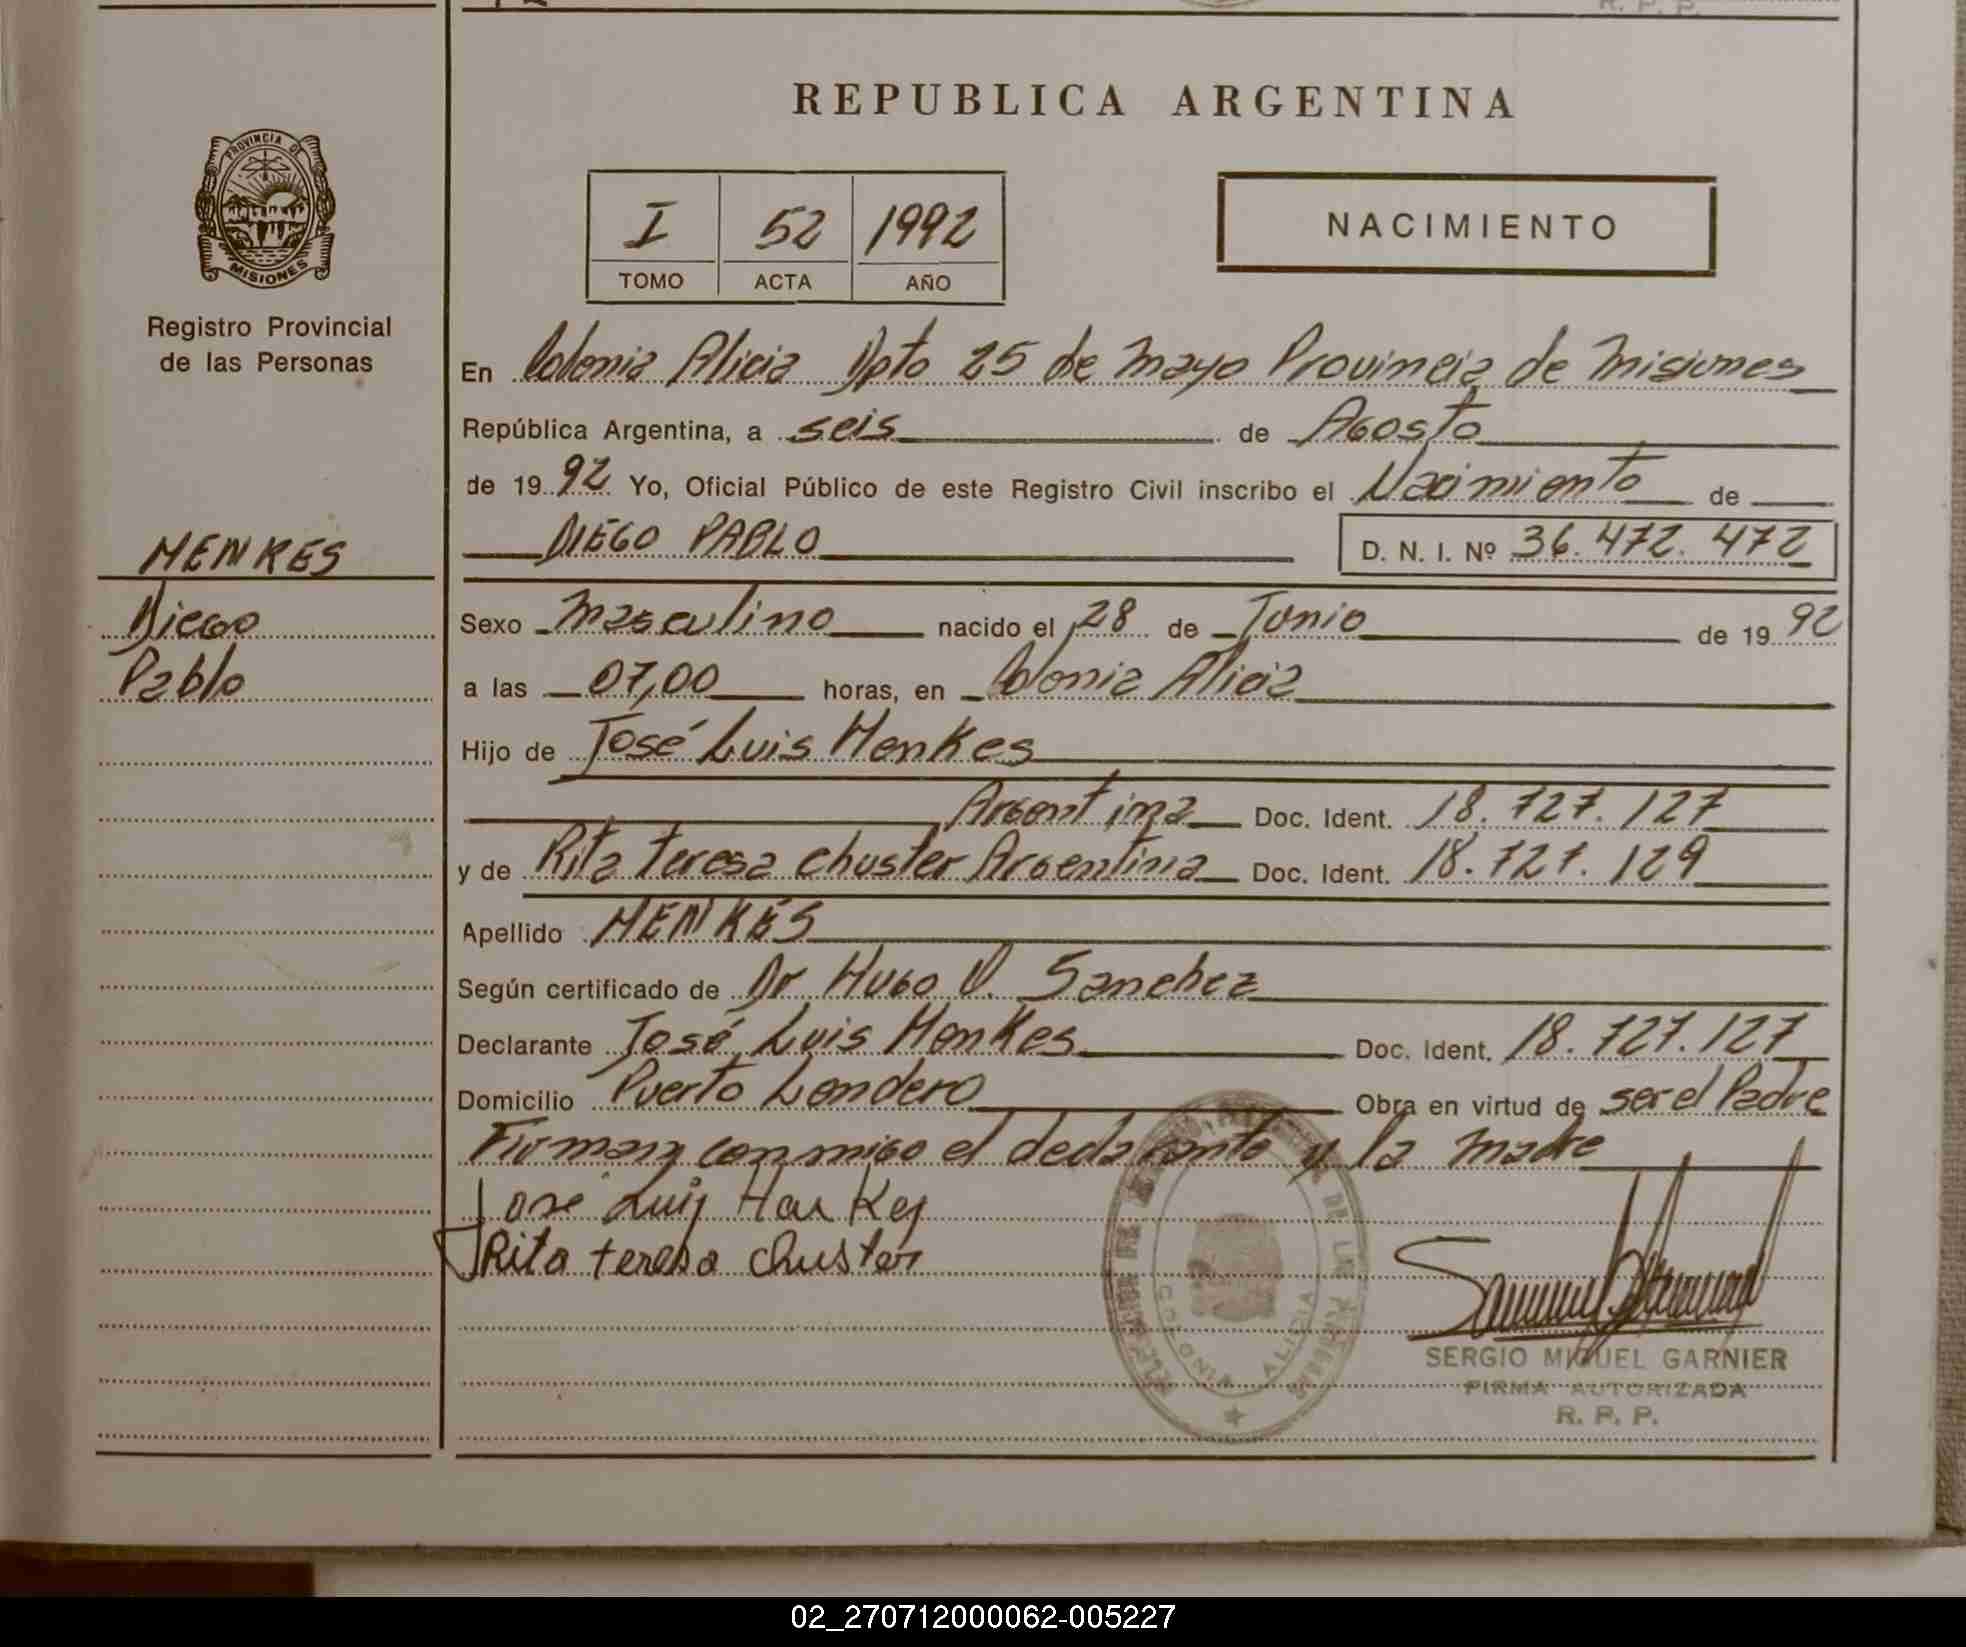 R. P. P.
REPUBLICA ARGENTINA
PROVINCIA DE
MISIONES
I 52 1992
TOMO ACTA AÑO
NACIMIENTO
Registro Provincial
de las Personas
En Colonia Alicia Dpto 25 de Mayo Provincia de Misiones
República Argentina, a seis de Agosto
de 1992 Yo, Oficial Público de este Registro Civil inscribo el Nacimiento de
DIEGO PABLO D. N. I. Nº 36.472.472
HENKES
Diego
Pablo
Sexo Masculino nacido el 28 de Junio de 1992
a las 07,00 horas, en Colonia Alicia
Hijo de José Luis Henkes
Argentina Doc. Ident. 18.727.127
y de Rita teresa Chuster Argentina Doc. Ident. 18.727.129
Apellido HENKES
Según certificado de Dr Hugo V. Sanchez
Declarante José Luis Henkes Doc. Ident. 18.727.127
Domicilio Puerto Londero Obra en virtud de ser el Padre
Firman conmigo el declarante y la Madre
José Luis
Rita teresa Chuster
COLONIA ALICIA
SERGIO MIGUEL GARNIER
FIRMA AUTORIZADA
R. P. P.
02_270712000062-005227